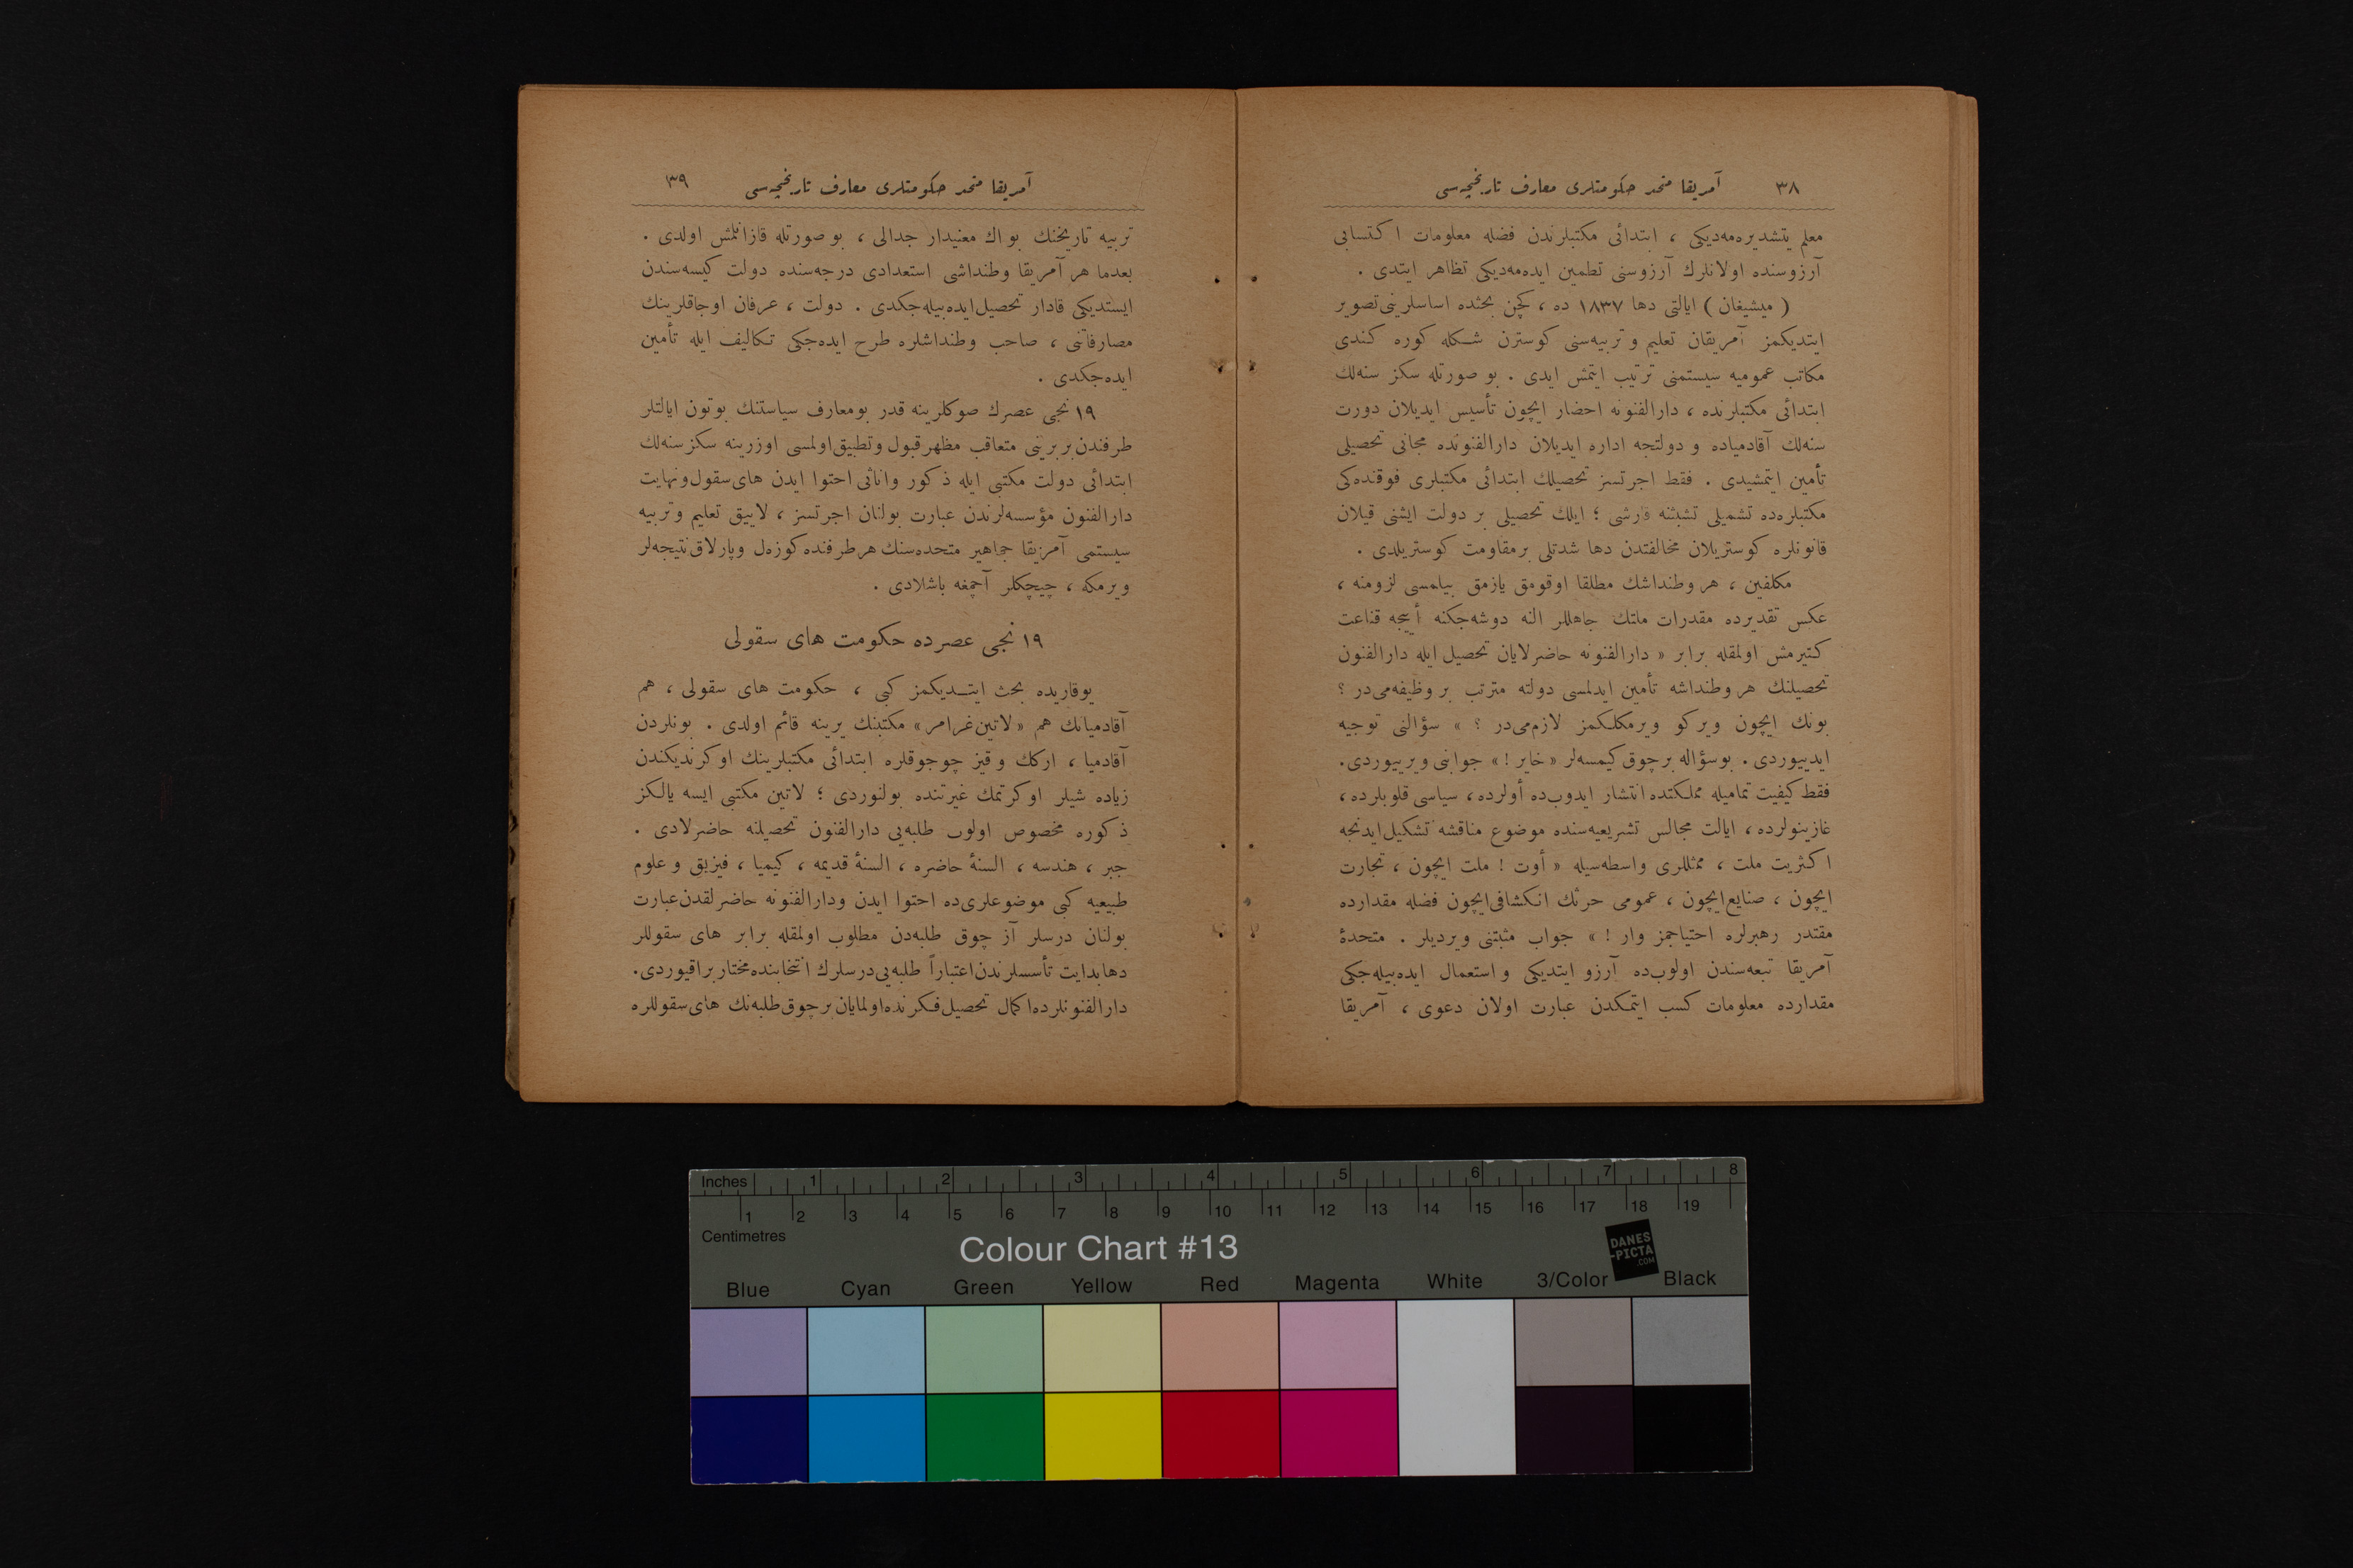 ٣٨ آمريقا متحد حكومتلرى معارف تاريخچه‌سى
معلم يتشديره‌مه‌ديكى ، ابتدائى مكتبلرندن فضله معلومات اكتسابى
آرزوسنده اولانلرك آرزوسنى تطمين ايده‌مه‌ديكى تظاهر ايتدى .
( ميشيغان ) ايالتى دها ١٨٣٧ ده ، كچن بحثده اساسلرينى تصوير
ايتديكمز آمريقان تعليم و تربيه‌سنى كوسترن شكله كوره كندى
مكاتب عموميه سيستمنى ترتيب ايتمش ايدى . بو صورتله سكز سنه‌لك
ابتدائى مكتبلرنده ، دارالفنونه احضار ايچون تأسيس ايديلان دورت
سنه‌لك آقادمياده و دولتجه اداره ايديلان دارالفنونده مجانى تحصيلى
تأمين ايتمشيدى . فقط اجرتسز تحصيلك ابتدائى مكتبلرى فوقنده‌كى
مكتبلره‌ده تشميلى تشبثنه قارشى ؛ ايلك تحصيلى بر دولت ايشنى قيلان
قانونلره كوستريلان مخالفتدن دها شدتلى بر مقاومت كوستريلدى .
مكلفين ، هر وطنداشك مطلقا اوقومق يازمق بيلمسى لزومنه ،
عكس تقديرده مقدرات ملتك جاهللر النه دوشه‌جكنه أييجه قناعت
كتيرمش اولمقله برابر « دارالفنونه حاضرلايان تحصيل ايله دارالفنون
تحصيلنك هر وطنداشه تأمين ايدلمسى دولته مترتب بر وظيفه‌مى‌در ؟
بونك ايچون ويركو ويرمكلكمز لازم‌مى‌در ؟ » سؤالنى توجيه
ايدييوردى . بوسؤاله برچوق كيمسه‌لر « خاير ! » جوابنى ويرييوردى.
فقط كيفيت تماميله مملكتده انتشار ايدوب‌ده أولرده، سياسى قلوبلرده،
غازينولرده، ايالت مجالس تشريعيه‌سنده موضوع مناقشه تشكيل ايدنجه
اكثريت ملت ، ممثللرى واسطه‌سيله « أوت ! ملت ايچون ، تجارت
ايچون ، صنايع ايچون ، عمومى حرثك انكشافى ايچون فضله مقدارده
مقتدر رهبرلره احتياجمز وار ! » جواب مثبتنى ويرديلر . متحدۀ
آمريقا تبعه‌سندن اولوب‌ده آرزو ايتديكى و استعمال ايده‌بيله‌جكى
مقدارده معلومات كسب ايتمكدن عبارت اولان دعوى ، آمريقا
آمريقا متحد حكومتلرى معارف تاريخچه‌سى ٣٩
تربيه تاريخنك بو اك معنيدار جدالى ، بو صورتله قازانلمش اولدى .
بعدما هر آمريقا وطنداشى استعدادى درجه‌سنده دولت كيسه‌سندن
ايستديكى قادار تحصيل ايده‌بيله‌جكدى . دولت ، عرفان اوجاقلرينك
مصارفاتنى ، صاحب وطنداشلره طرح ايده‌جكى تكاليف ايله تأمين
ايده‌جكدى .
١٩ نجى عصرك صوكلرينه قدر بومعارف سياستنك بوتون ايالتلر
طرفندن بربرينى متعاقب مظهر قبول و تطبيق اولمسى اوزرينه سكز سنه‌لك
ابتدائى دولت مكتبى ايله ذكور واناثى احتوا ايدن هاى سقول ونهايت
دارالفنون مؤسسه‌لرندن عبارت بولنان اجرتسز ، لاييق تعليم وتربيه
سيستمى آمريقا جماهير متحده‌سنك هر طرفنده كوزه‌ل وپارلاق نتيجه‌لر
ويرمكه ، چيچكلر آچمغه باشلادى .
١٩ نجى عصرده حكومت هاى سقولى
يوقاريده بحث ايتديكمز كبى ، حكومت هاى سقولى ، هم
آقادميانك هم «لاتين غرامر» مكتبنك يرينه قائم اولدى . بونلردن
آقادميا ، اركك و قيز چوجوقلره ابتدائى مكتبلرينك اوكرنديكندن
زياده شيلر اوكرتمك غيرتنده بولنوردى ؛ لاتين مكتبى ايسه يالكز
ذكوره مخصوص اولوب طلبه‌يى دارالفنون تحصيلنه حاضرلادى .
جبر ، هندسه ، السنۀ حاضره ، السنۀ قديمه ، كيميا ، فيزيق و علوم
طبيعيه كبى موضوعلرى‌ده احتوا ايدن ودارالفنونه حاضرلقدن عبارت
بولنان درسلر آز چوق طلبه‌دن مطلوب اولمقله برابر هاى سقوللر
دها بدايت تأسسلرندن اعتباراً طلبه‌يى درسلرك انتخابنده مختار براقيوردى.
دارالفنونلرده اكمال تحصيل فكرنده اولمايان برچوق طلبه‌نك هاى سقوللره
Inches 1 2 3 4 5 6 7 8
1 2 3 4 5 6 7 8 9 10 11 12 13 14 15 16 17 18 19
Centimetres
Colour Chart #13
DANES
-PICTA
.COM
Blue Cyan Green Yellow Red Magenta White 3/Color Black